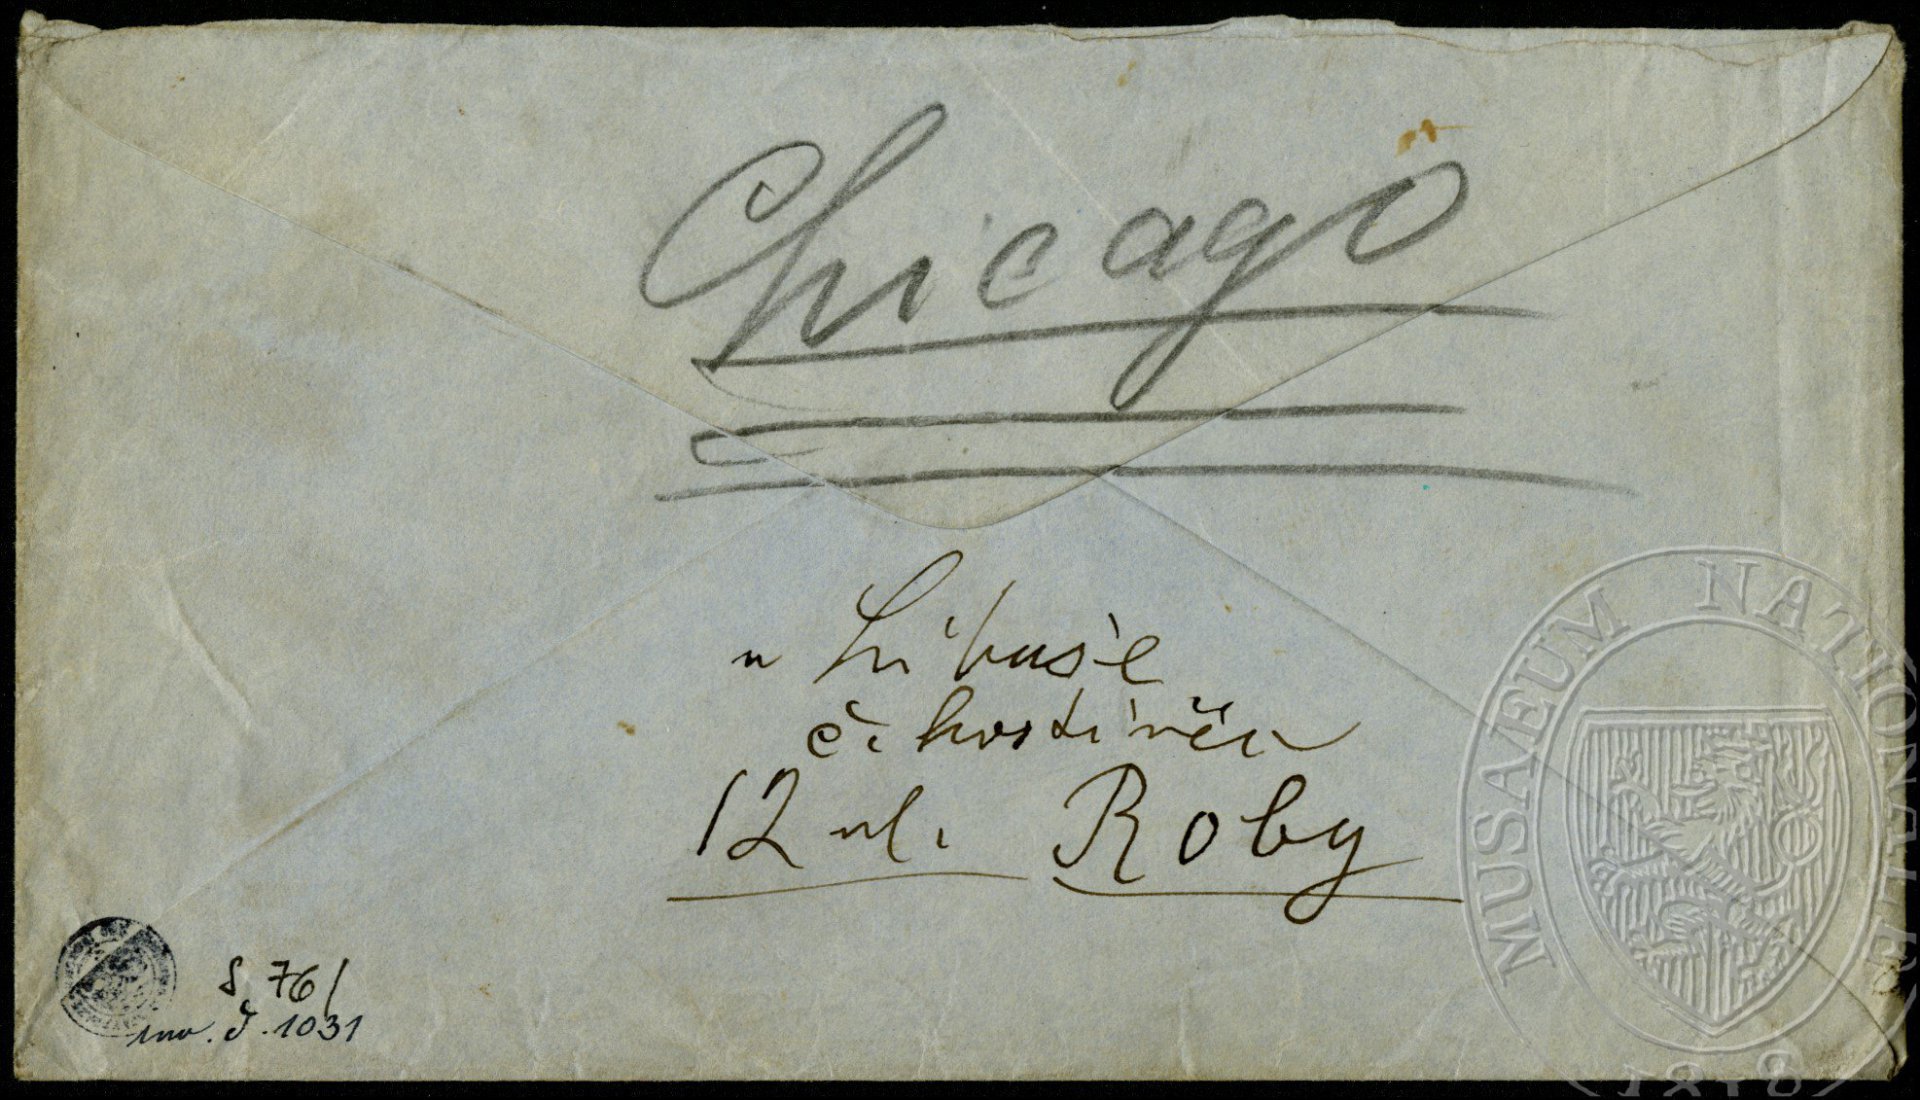 Chicago
u Libuše
12 ul. Roby
S 76/
inv. č. 1031
MUSAEUM NATIONALE
1818